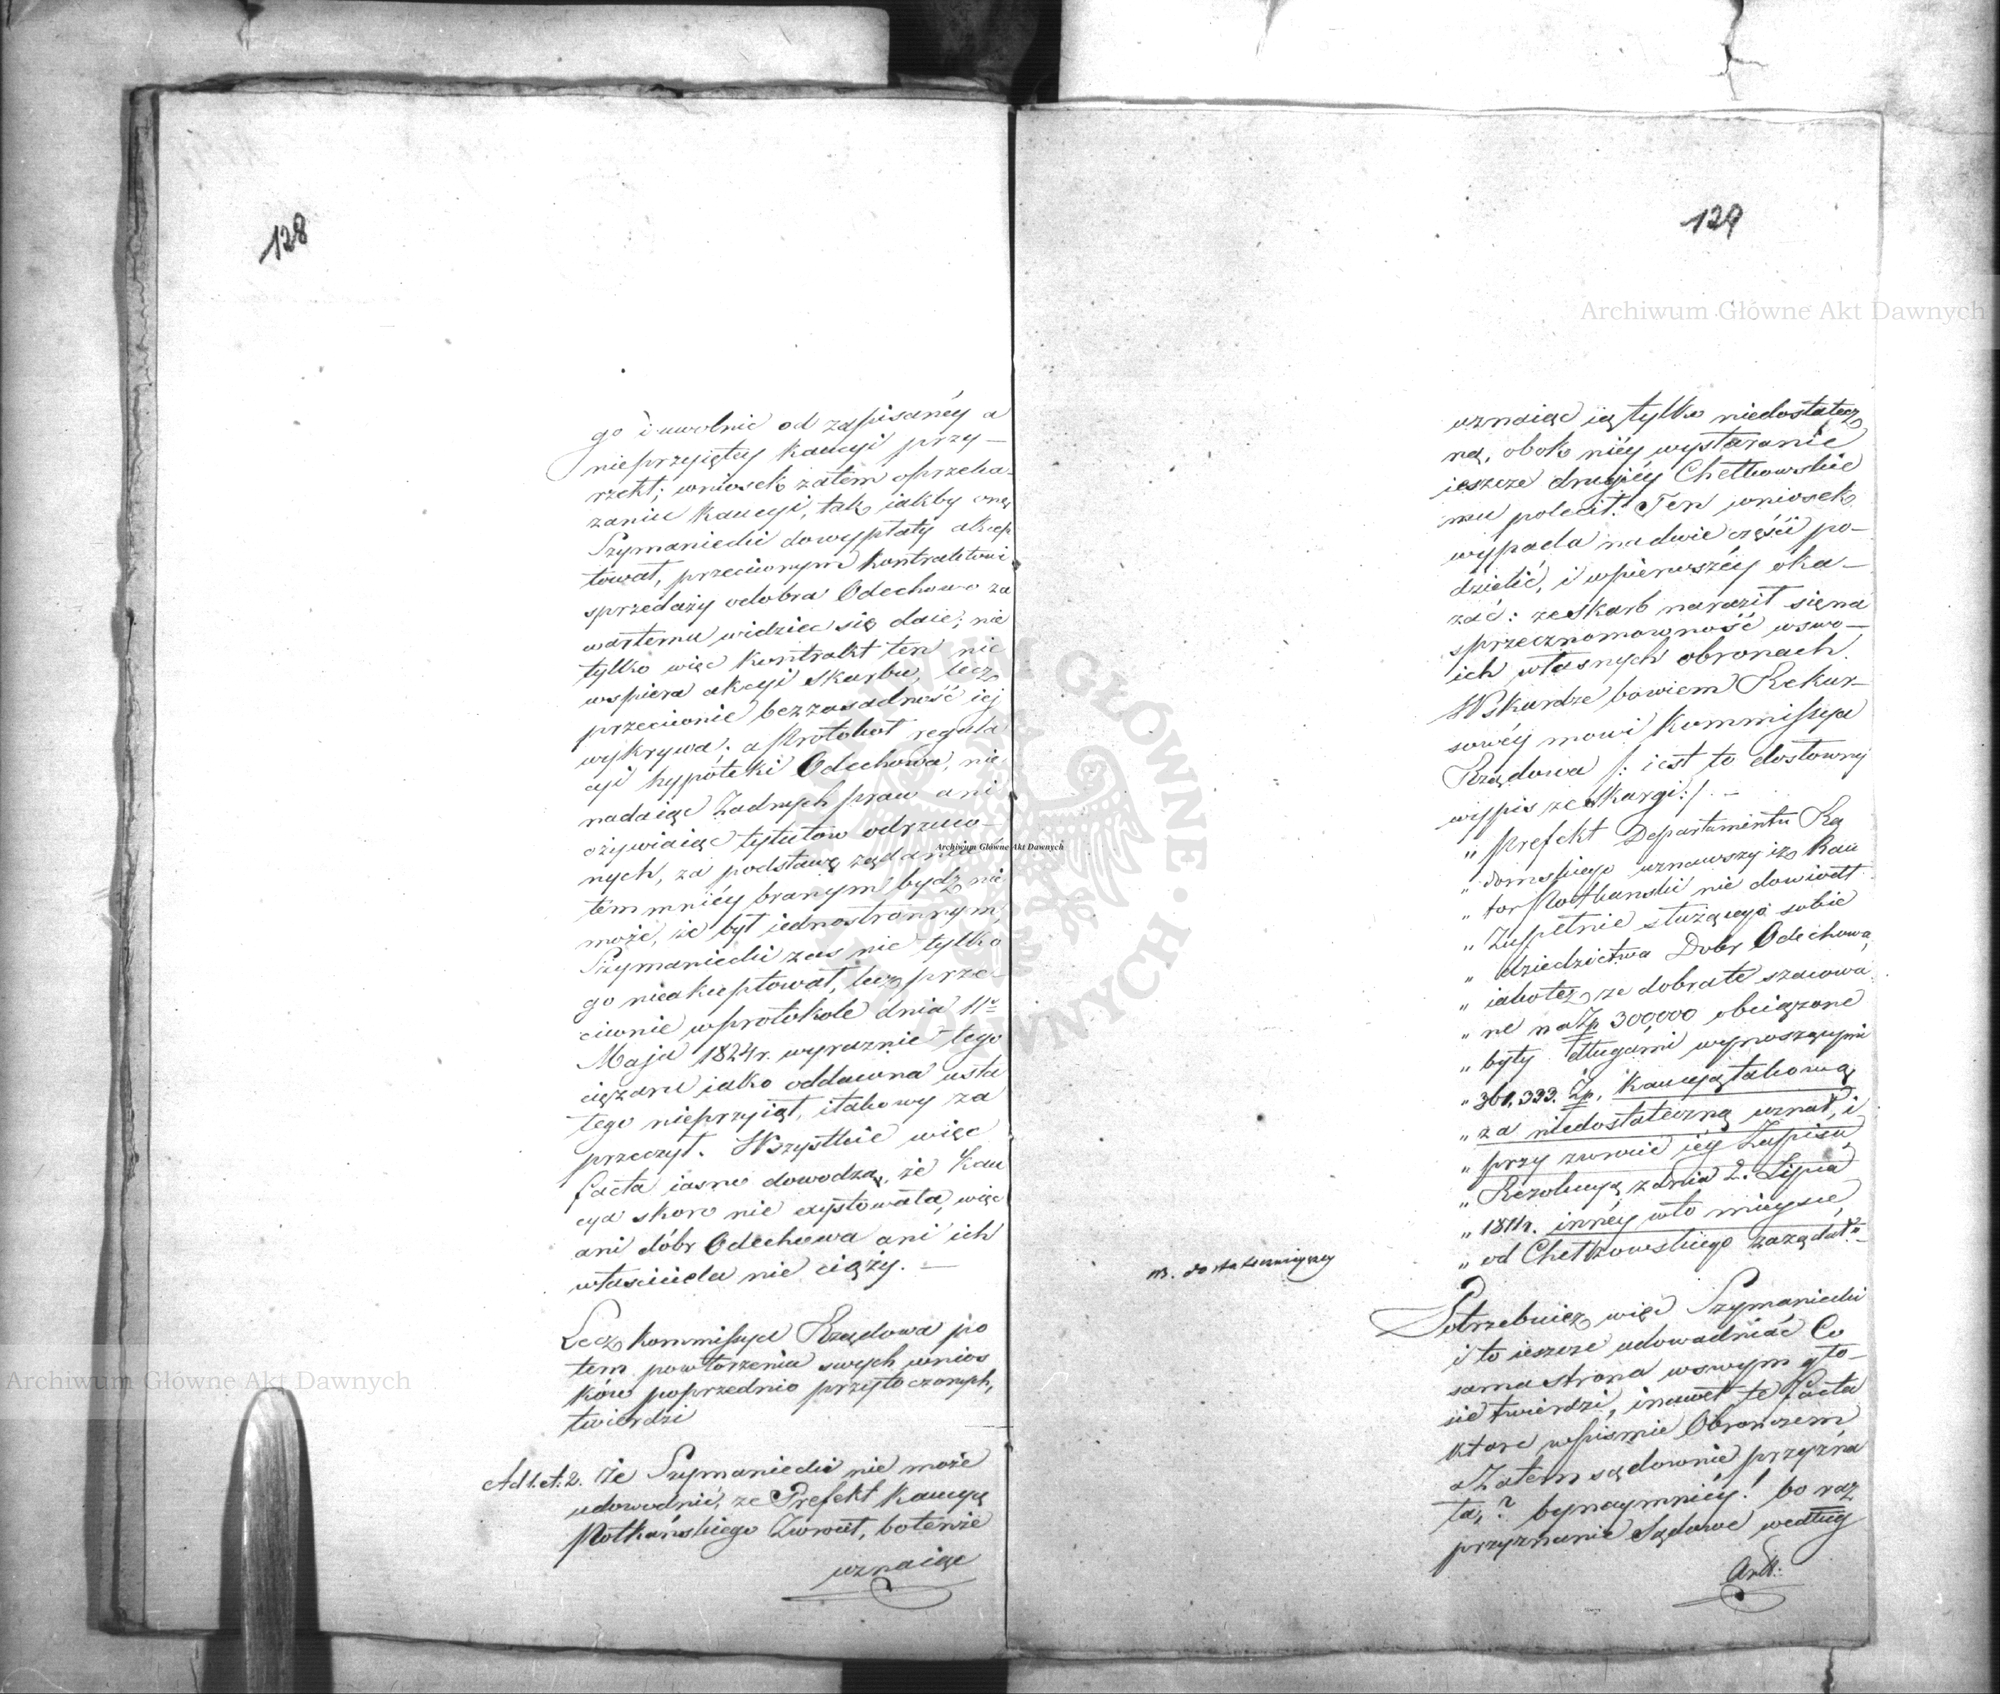 128
go i uwolnić od zapisanéy a
nieprzyiętey kaucyi przy-
rzekł; wniosek zatem o przeka-
zaniu kaucyi, tak iakby onę
Szymaniecki do wypłaty akcep
tował, przeciwnym kontraktowi
sprzedaży o dobra Odechowo za
wartemu widziec się daie; nie
tylko więc kontrakt ten nie
wspiera akcyi Skarbu, lecz
przeciwnie bezzasadność iej
wykrywa; a Protokół regula
cyi hypoteki Odechowa, nie
nadaiąc żadnych praw ani
ożywiaiąc tytułow odrzuco-
nych, za podstawę żądania
tem mniéy branym bydz nie
może, że był iednostronnym,
Szymaniecki zas nie tylko
go nieakceptował, lecz prze-
ciwnie w protokole dnia 11º
Maja 1824 r. wyraznie tego
ciężaru iako oddawna usta
łego nieprzyiął, i takowy za
przeczył. Wszystkie więc
facta iasno dowodzą, że kau
cya skoro nie exystowała, więc
ani dóbr Odechowa ani ich
właściciela nie ciąży. —
Lecz Kommissya Rządowa po
tem powtorzeniu swych wnios
ków poprzednio przytoczonych,
twierdzi
Ad 1. et. 2. że Szymaniecki nie może
udowodnić, ze Prefekt kaucyą
Potkańskiego zwrócił, bo tenże
uznaiąc
129
uznaiąc ią tylko niedostatecz
ną, obok niéy wystaranie
ieszcze drugiéy Chełkowskie
mu polecił. Ten wniosek
wypada na dwie części po-
dzielić, i w pierwszéy oka-
zać: że Skarb naraził się na
sprzecznomowność w swo-
ich własnych obronach.
W Skardze bowiem Rekur-
sowéy mowi Kommissya
Rządowa /: iest to dosłowny
wypis ze skargi :/. —
„ Prefekt Departamentu Ra
„ domskiego uznawszy iż kau
„ tor Potkanski nie dowiódł
„ zupełnie służącego sobie
„ dziedzictwa Dobr Odechowa,
„ iakoteż ze dobra te szacowa
„ ne na Zp 300,000 obciążone
„ były długami wynoszącymi
„ 361,333. Zp, kaucyą takową
„ za niedostateczną uznał, i
„ przy zwrocie iéy Zapisu,
„ Rezolucyą z dnia 2. Lipca
„ 1811 r. innéy w to mieysce,
„ od Chełkowskiego zażądał."
Potrzebuież więc Szymaniecki
i to ieszcze udowadniać Co
sama strona w swym gło-
sie twierdzi, i nawet te facta
ktore w piśmie Obronczem
a zatem sądownie przyzna
ła? bynaymniéy! bo raz
przyznanie Sądowe według
Artt: